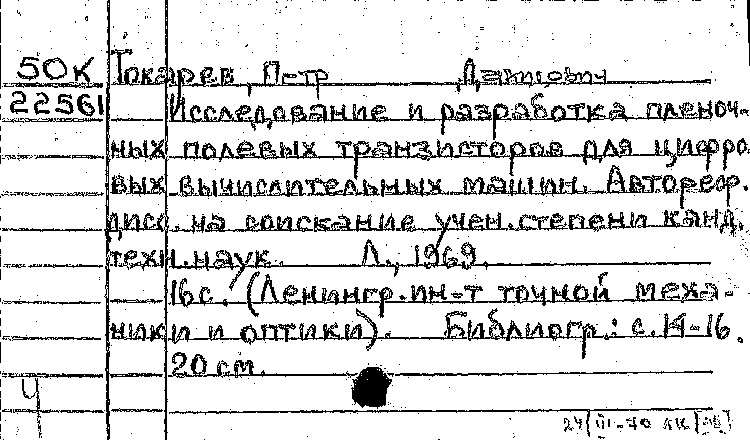 50К Токарев, Петр Данилович
22561 Исследование и разработка пленоч-
ных полевых транзисторов для цифро
вых вычислительных машин. Автореф.
дисс. на соискание учен. степени канд.
техн. наук. Л., 1969.
16 с. (Ленингр. ин-т точной меха-
ники и оптики). Библиогр.: с. 14-16.
20 см.
Ч
24/III-70